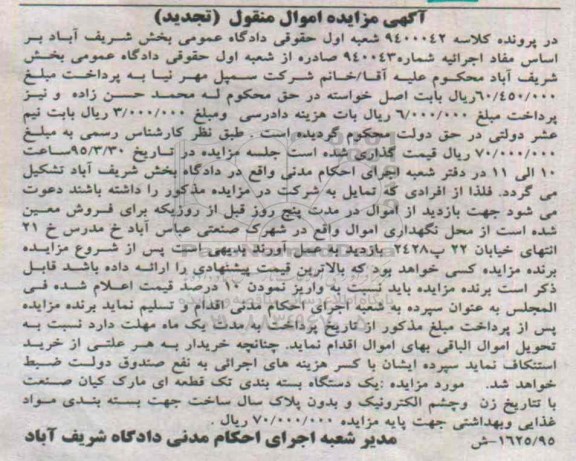 آگهی مزایده اموال منقول (تجدید)
در پرونده کلاسه ۹۴۰۰۰۴۲ شعبه اول حقوقی دادگاه عمومی بخش شریف آباد بر
اساس مفاد اجرائیه شماره۹۴۰۰۴۳ صادره از شعبه اول حقوقی دادگاه عمومی بخش
شریف آباد محکوم علیه آقا/خانم شرکت سمیل مهر نیا به پرداخت مبلغ
۶۰/۴۵۰/۰۰۰ریال بابت اصل خواسته در حق محکوم له محمد حسن زاده و نیز
پرداخت مبلغ ۶/۰۰۰/۰۰۰ ریال بات هزینه دادرسی ومبلغ ۳/۰۰۰/۰۰۰ ریال بابت نیم
عشر دولتی در حق دولت محکوم گردیده است . طبق نظر کارشناس رسمی به مبلغ
۷۰/۰۰۰/۰۰۰ ریال قیمت گذاری شده است جلسه مزایده در تاریخ ۹۵/۳/۳۰ساعت
۱۰ الی ۱۱ در دفتر شعبه اجرای احکام مدنی واقع در دادگاه بخش شریف آباد تشکیل
می گردد. فلذا از افرادی که تمایل به شرکت در مزایده مذکور را داشته باشند دعوت
می شود جهت بازدید از اموال در مدت پنج روز قبل از روزیکه برای فروش معین
شده است از محل نگهداری اموال واقع در شهرک صنعتی عباس آباد خ مدرس خ ۲۱
انتهای خیابان ۲۲ پ۲۴۲۸ بازدید به عمل آورند بدیهی است پس از شروع مزایده
برنده مزایده کسی خواهد بود که بالاترین قیمت پیشنهادی را ارائه داده باشد قابل
ذکر است برنده مزایده باید نسبت به واریز نمودن ۱۰ درصد قیمت اعلام شده فی
المجلس به عنوان سپرده به شعبه اجرای احکام مدنی اقدام و تسلیم نماید برنده مزایده
پس از پرداخت مبلغ مذکور از تاریخ پرداخت به مدت یک ماه مهلت دارد نسبت به
تحویل اموال الباقی بهای اموال اقدام نماید. چنانچه خریدار به هر علتی از خرید
استنکاف نماید سپرده ایشان با کسر هزینه های اجرائی به نفع صندوق دولت ضبط
خواهد شد. مورد مزایده :یک دستگاه بسته بندی تک قطعه ای مارک کیان صنعت
با تتاریخ زن وچشم الکترونیک و بدون پلاک سال ساخت جهت بسته بندی مواد
غذایی وبهداشتی جهت پایه مزایده ۷۰/۰۰۰/۰۰۰ ریال .
۱۶۲۵/۹۵-ش مدیر شعبه اجرای احکام مدنی دادگاه شریف آباد